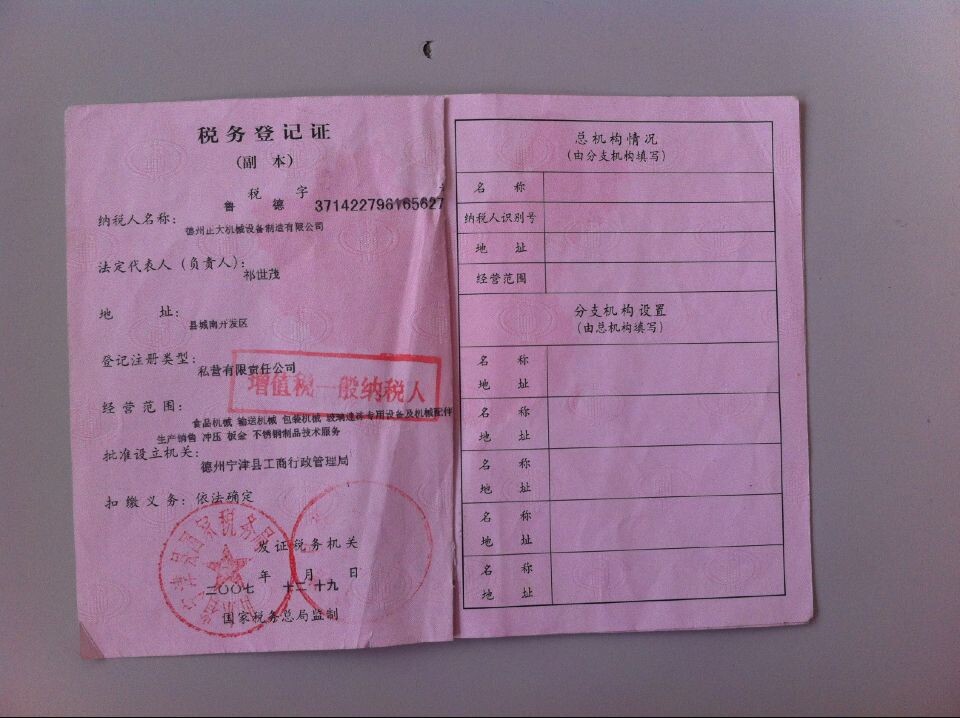 税务登记证
(副 本)
税 字
鲁 德 371422796165627
纳税人名称:
德州正大机械设备制造有限公司
法定代表人(负责人):
祁世茂
地 址:
县城南开发区
登记注册类型:
私营有限责任公司
增值税一般纳税人
经营范围:
食品机械 输送机械 包装机械 专用设备及机械配件
生产销售 冲压 板金 不锈钢制品技术服务
批准设立机关:
德州宁津县工商行政管理局
扣缴义务:依法确定
宁津县国家税务局
发证税务机关
年 月 日
二〇〇七 十二 十九
国家税务总局监制
总机构情况
(由分支机构填写)
名 称
纳税人识别号
地 址
经营范围
分支机构设置
(由总机构填写)
名 称
地 址
名 称
地 址
名 称
地 址
名 称
地 址
名 称
地 址